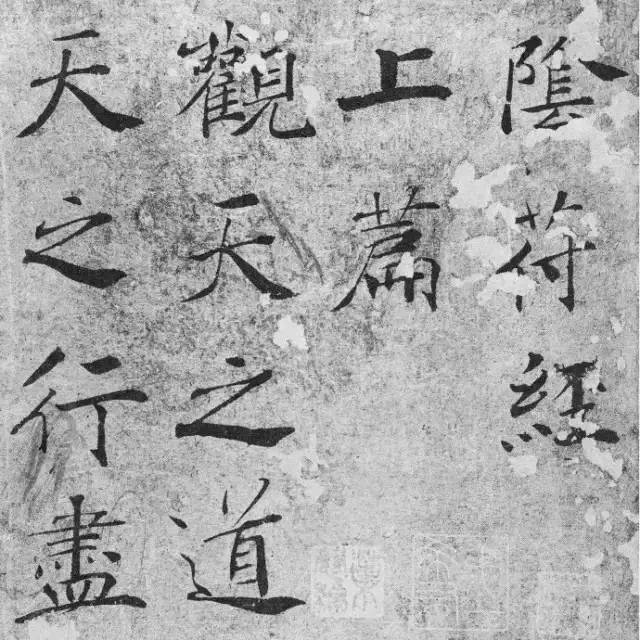 陰符經
上篇
觀天之道
天之行盡